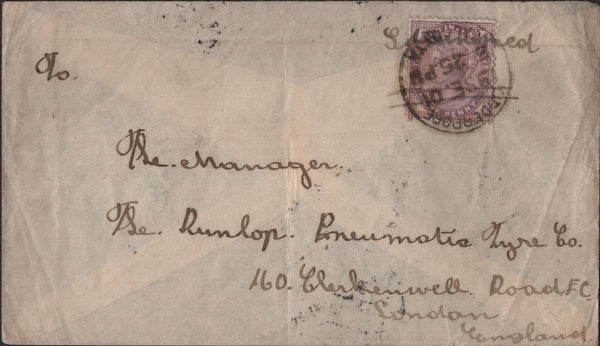 To.
The. Manager.
The. Dunlop. Pneumatic Tyre Co.
160. Clerkenwell. Road E.C.
London
England
PENNY